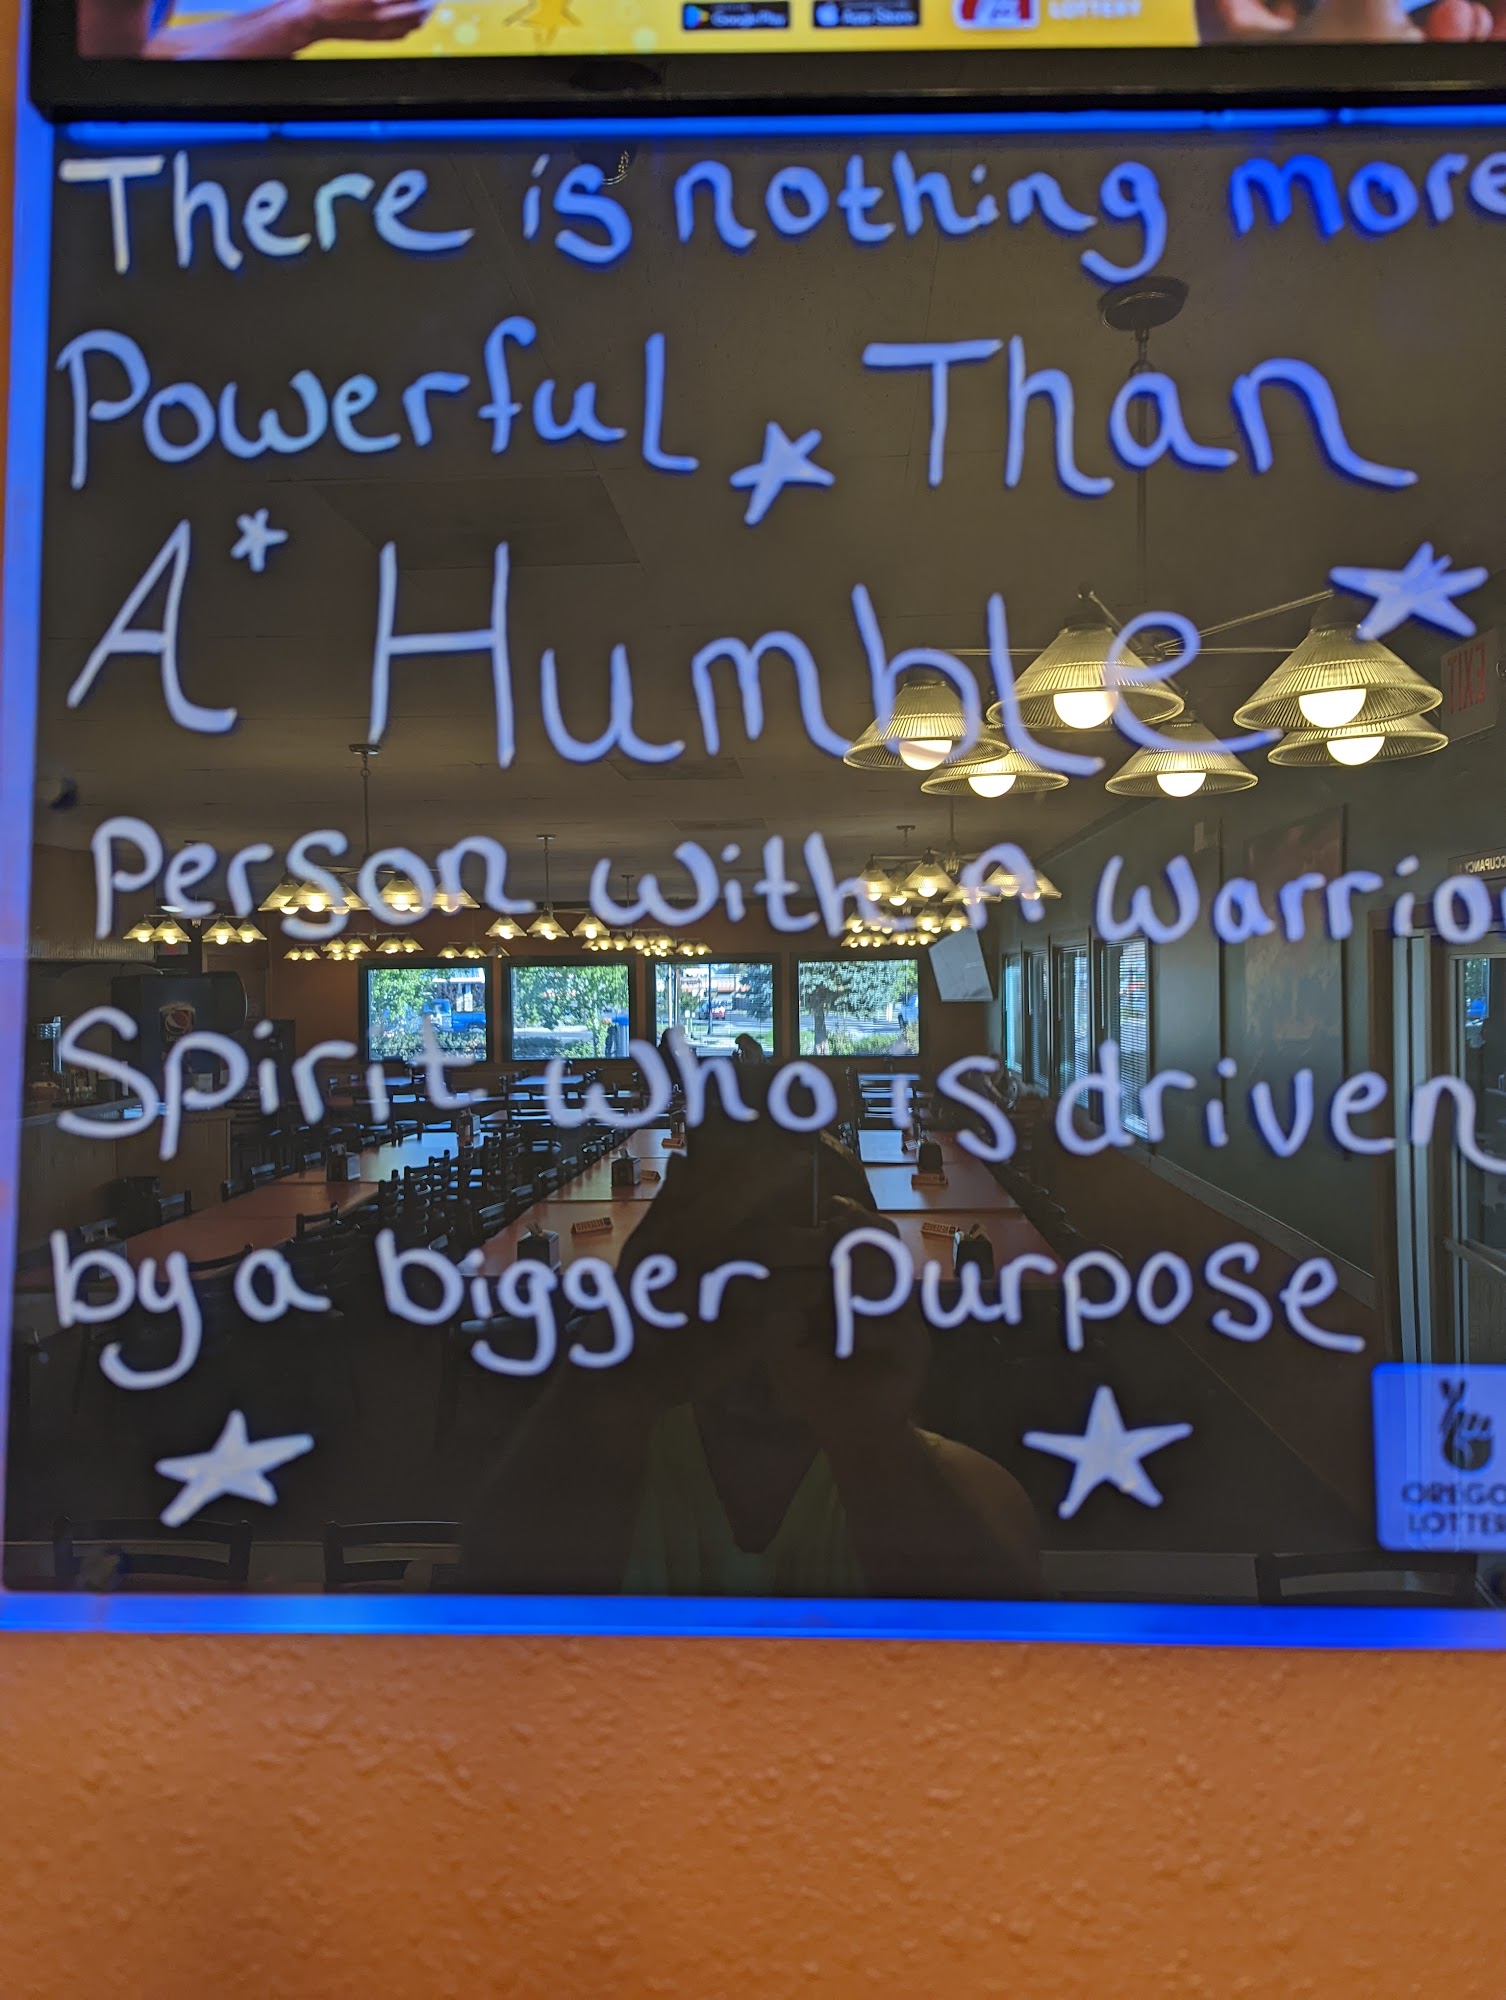 Google Play App Store LOTTERY
There is nothing more
Powerful Than
A Humble
Person with a warrio
Spirit who is driven
by a bigger Purpose
OREGO
LOTTER
EXIT